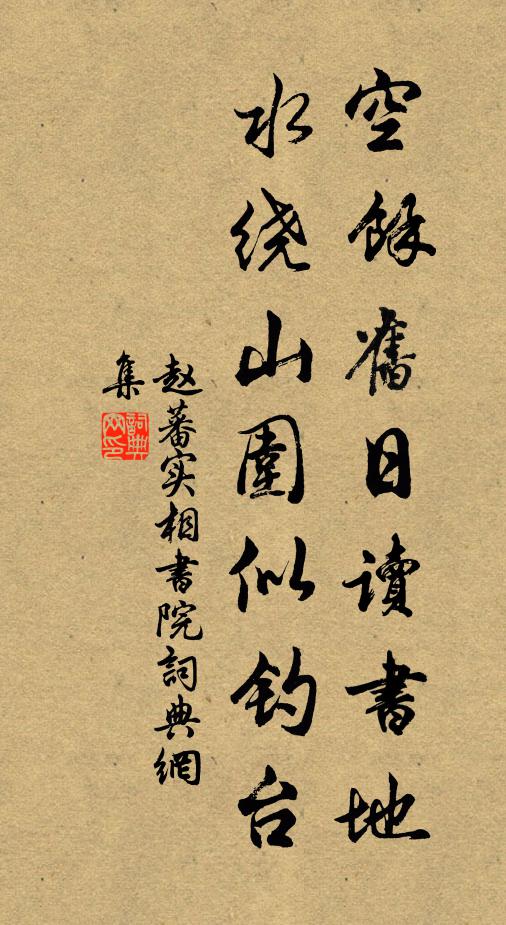 空餘舊日讀書地
水绕山圍似钓台
赵蕃实相書院詞典網
集
詞典網印